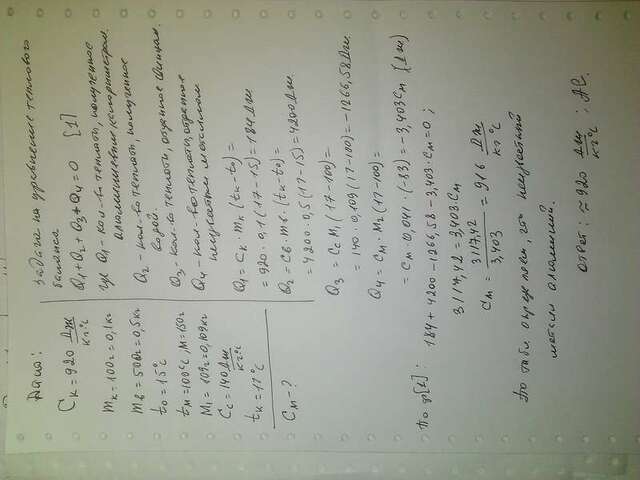 Дано:
Cк = 920 Дж/кг·°С
mк = 100г = 0,1кг
mв = 500г = 0,5кг
t0 = 15°С
tм = 100°С, M = 150г
M1 = 109г = 0,109кг
Cс = 140 Дж/кг·°С
tк = 17°С
Cм - ?
Задача на уравнение теплового
баланса
Q1 + Q2 + Q3 + Q4 = 0 [1]
где Q1 - кол-во теплоты, полученное
алюминиевым калориметром.
Q2 - кол-во теплоты, полученное
водой.
Q3 - кол-во теплоты, отданное свинцом.
Q4 - кол-во теплоты, отданное
неизвестным металлом
Q1 = Cк · mк (tк - t0) =
= 920 · 0,1 (17 - 15) = 184 Дж
Q2 = Cв · mв · (tк - t0) =
= 4200 · 0,5 (17 - 15) = 4200 Дж.
Q3 = Cс M1 (17 - 100) =
= 140 · 0,109 (17 - 100) = -1266,58 Дж.
Q4 = Cм · M2 (17 - 100) =
= Cм · 0,041 · (-83) = -3,403 Cм (Дж)
По ф[1]: 184 + 4200 - 1266,58 - 3,403 · Cм = 0 ;
3117,42 = 3,403 · Cм
Cм = 3117,42 / 3,403 = 916 Дж/кг·°С
По табл. определяем, что неизвестный
металл алюминий.
Ответ: ≈ 920 Дж/кг·°С ; Al.